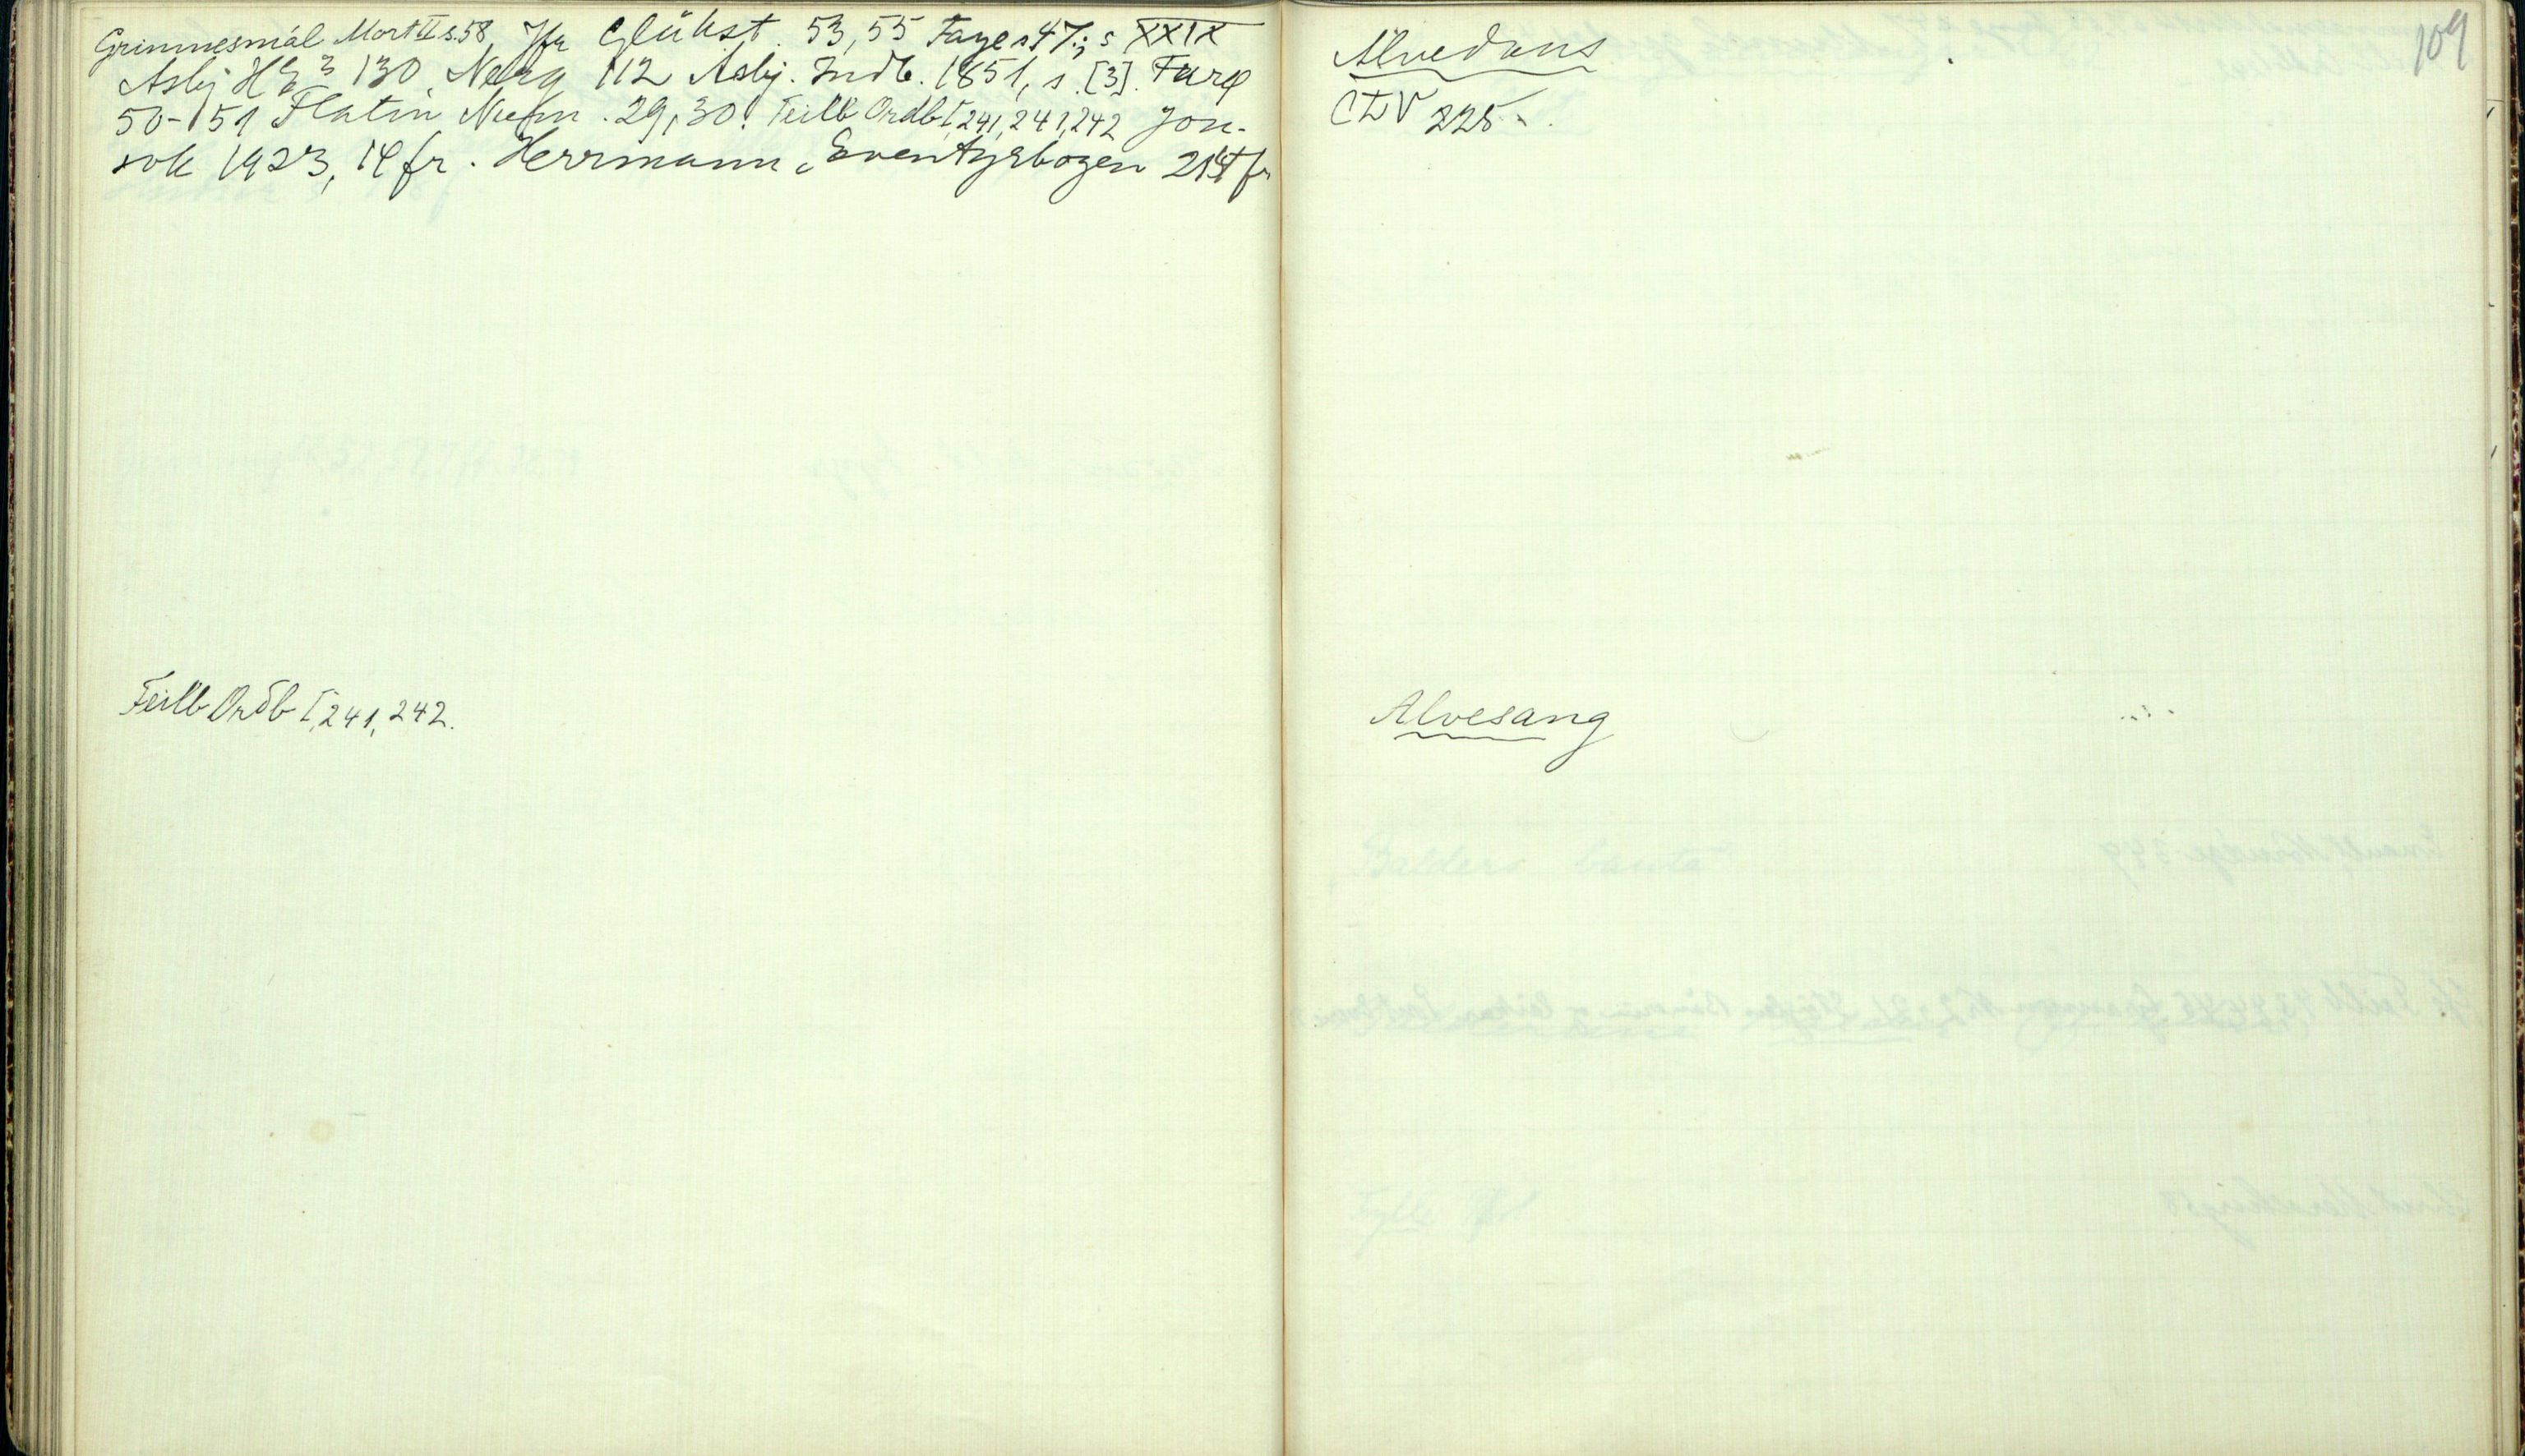 Grimmesmål Mort II s. 58, Jfr Glükst. 53, 55 Faye s 47.; s XXIX
Asbj H E 3 130 Nerg 112 Asbj. Indb. 1851, s. [3].
50-51 Flatin 29, 30. Feilb Ordb I, 241, 241, 242 Jon-
sok 1923, 14 fr. Herrmann, Eventyrbogen fr
Feilb Ordb I, 241, 242.
109
Alvedans
225
Alvesang